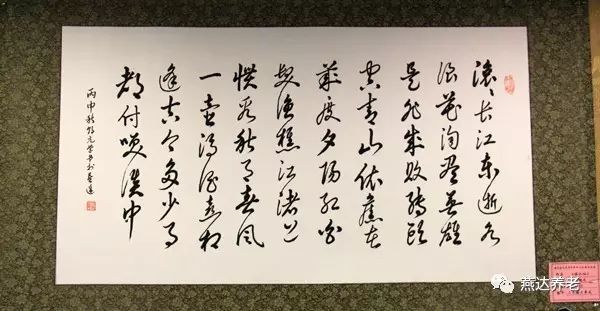 滚滚长江东逝水
浪花淘尽英雄
是非成败转头
空青山依旧在
几度夕阳红白
发渔樵江渚上
惯看秋月春风
一壶浊酒喜相
逢古今多少事
都付笑谈中
丙申秋元学书于燕达
燕达养老